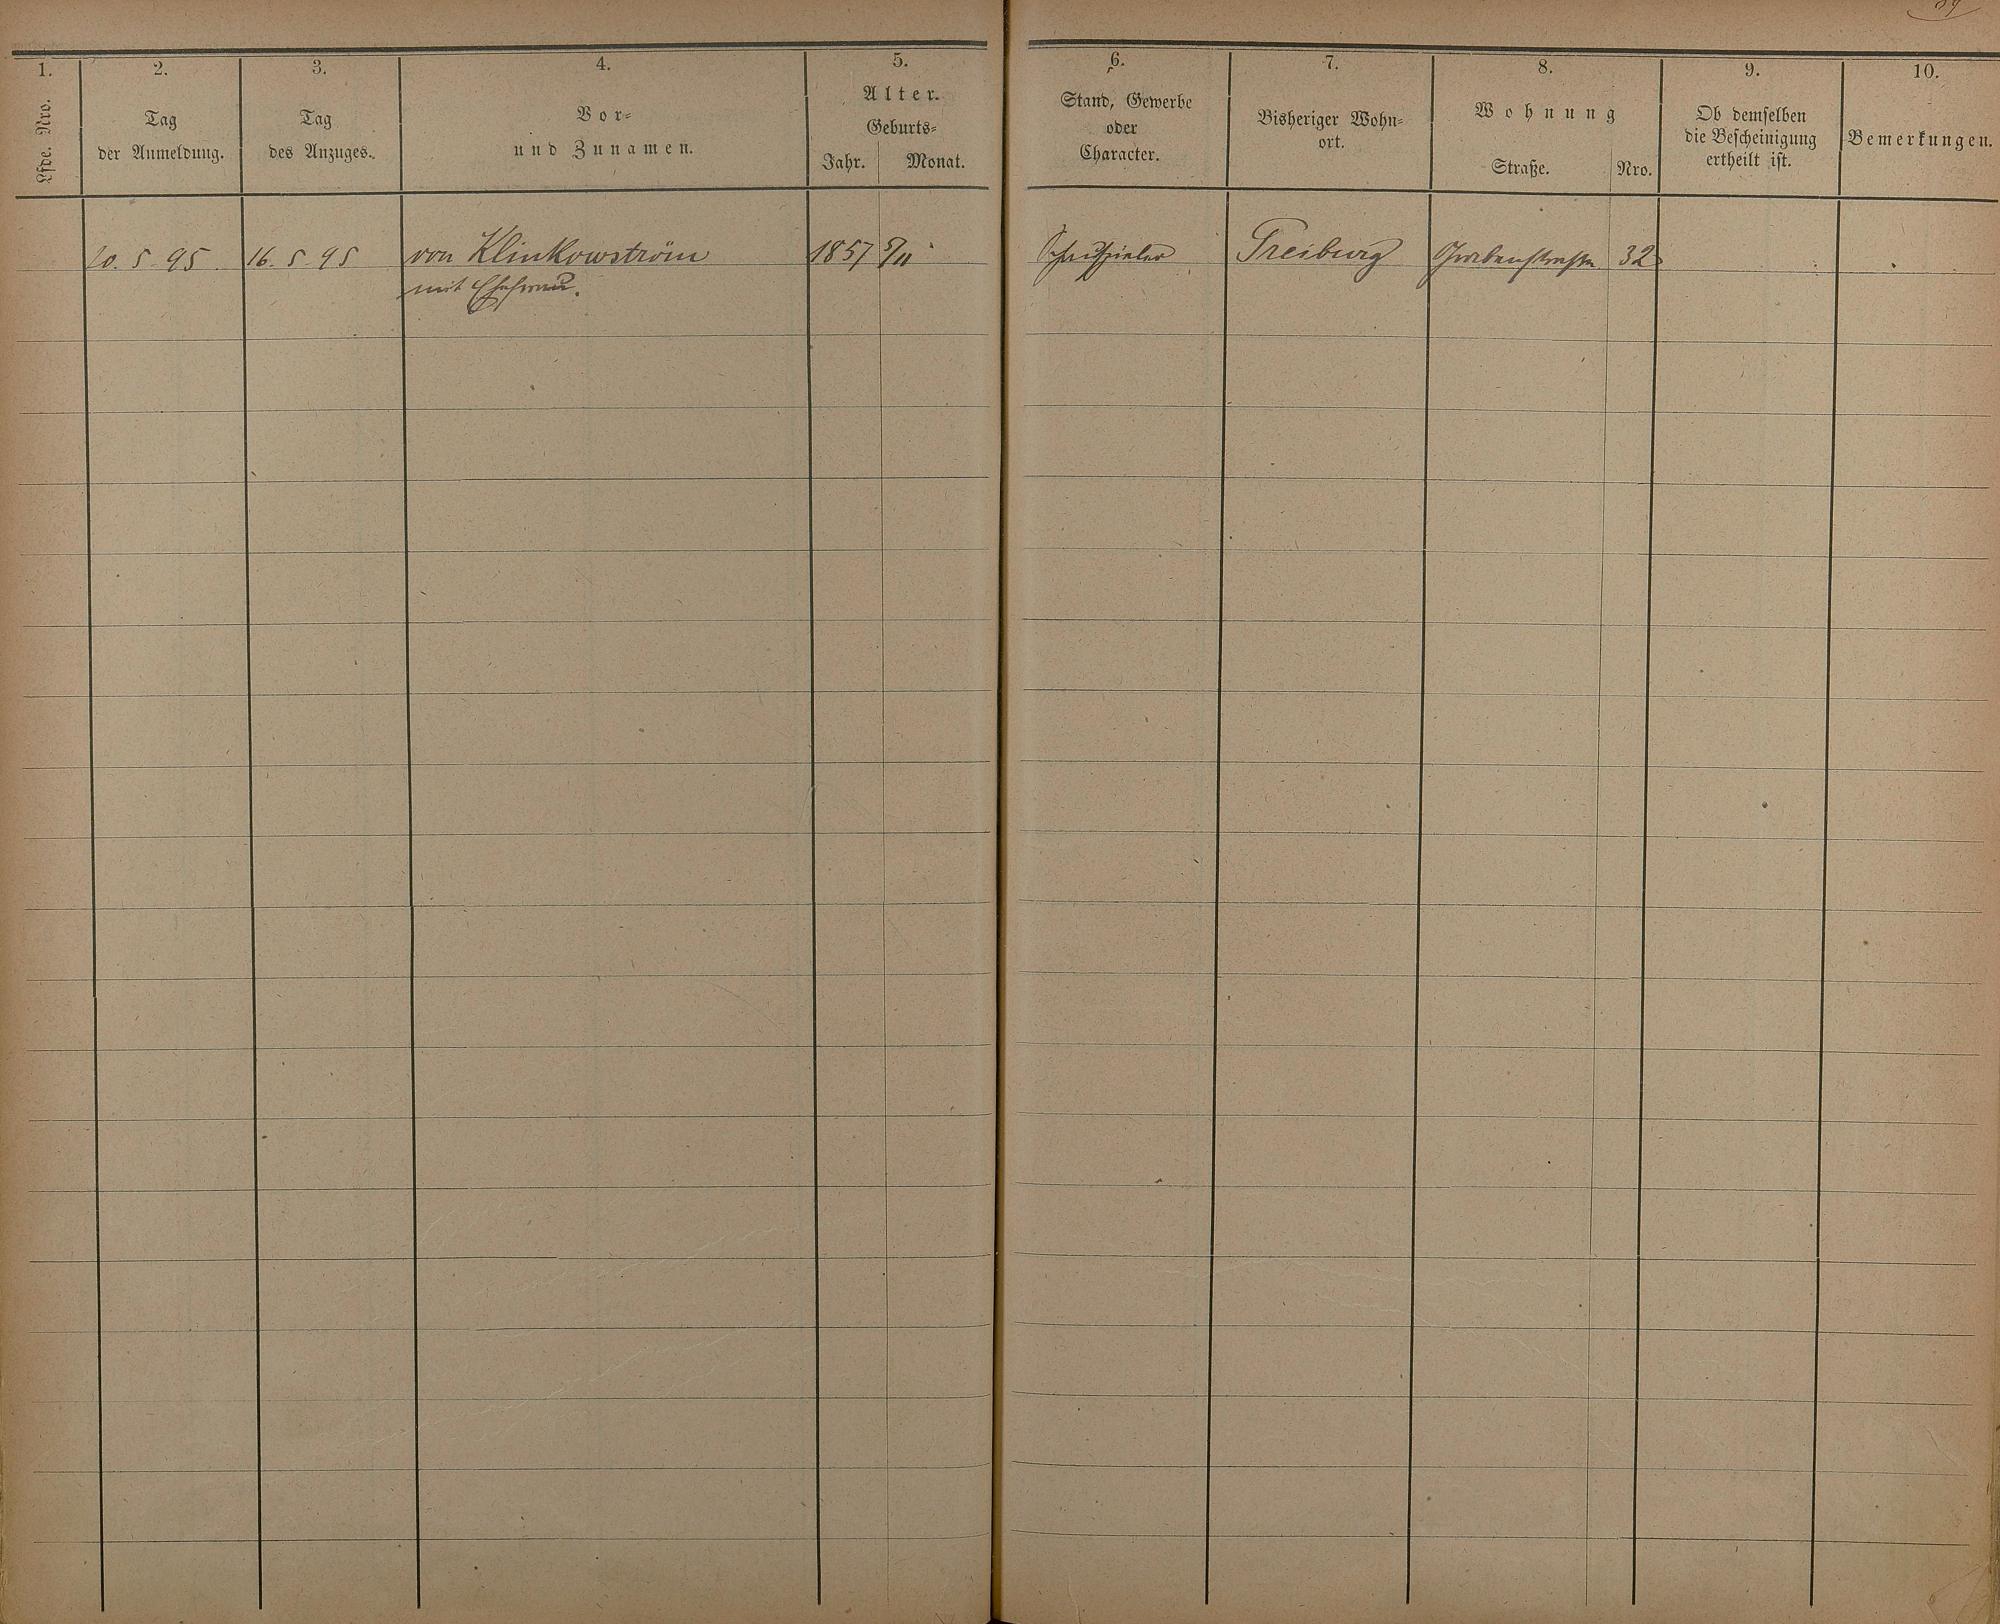 1. 2. 3. 4. 5. 6. 7. 8. 9. 10.
Lfde. Nro.
Tag
der Anmeldung.
Tag
des Anzuges.
Vor-
und Zunamen.
Alter.
Geburts-
Jahr. Monat.
Stand, Gewerbe
oder
Character.
Bisheriger Wohn-
ort.
Wohnung
Straße. Nro.
Ob demselben
die Bescheinigung
ertheilt ist.
Bemerkungen.
20. 5. 95. 16. 5. 95 von Klinkowström 1857 5/11 Schauspieler Freiburg Grabenstraße 32
mit Ehefrau.